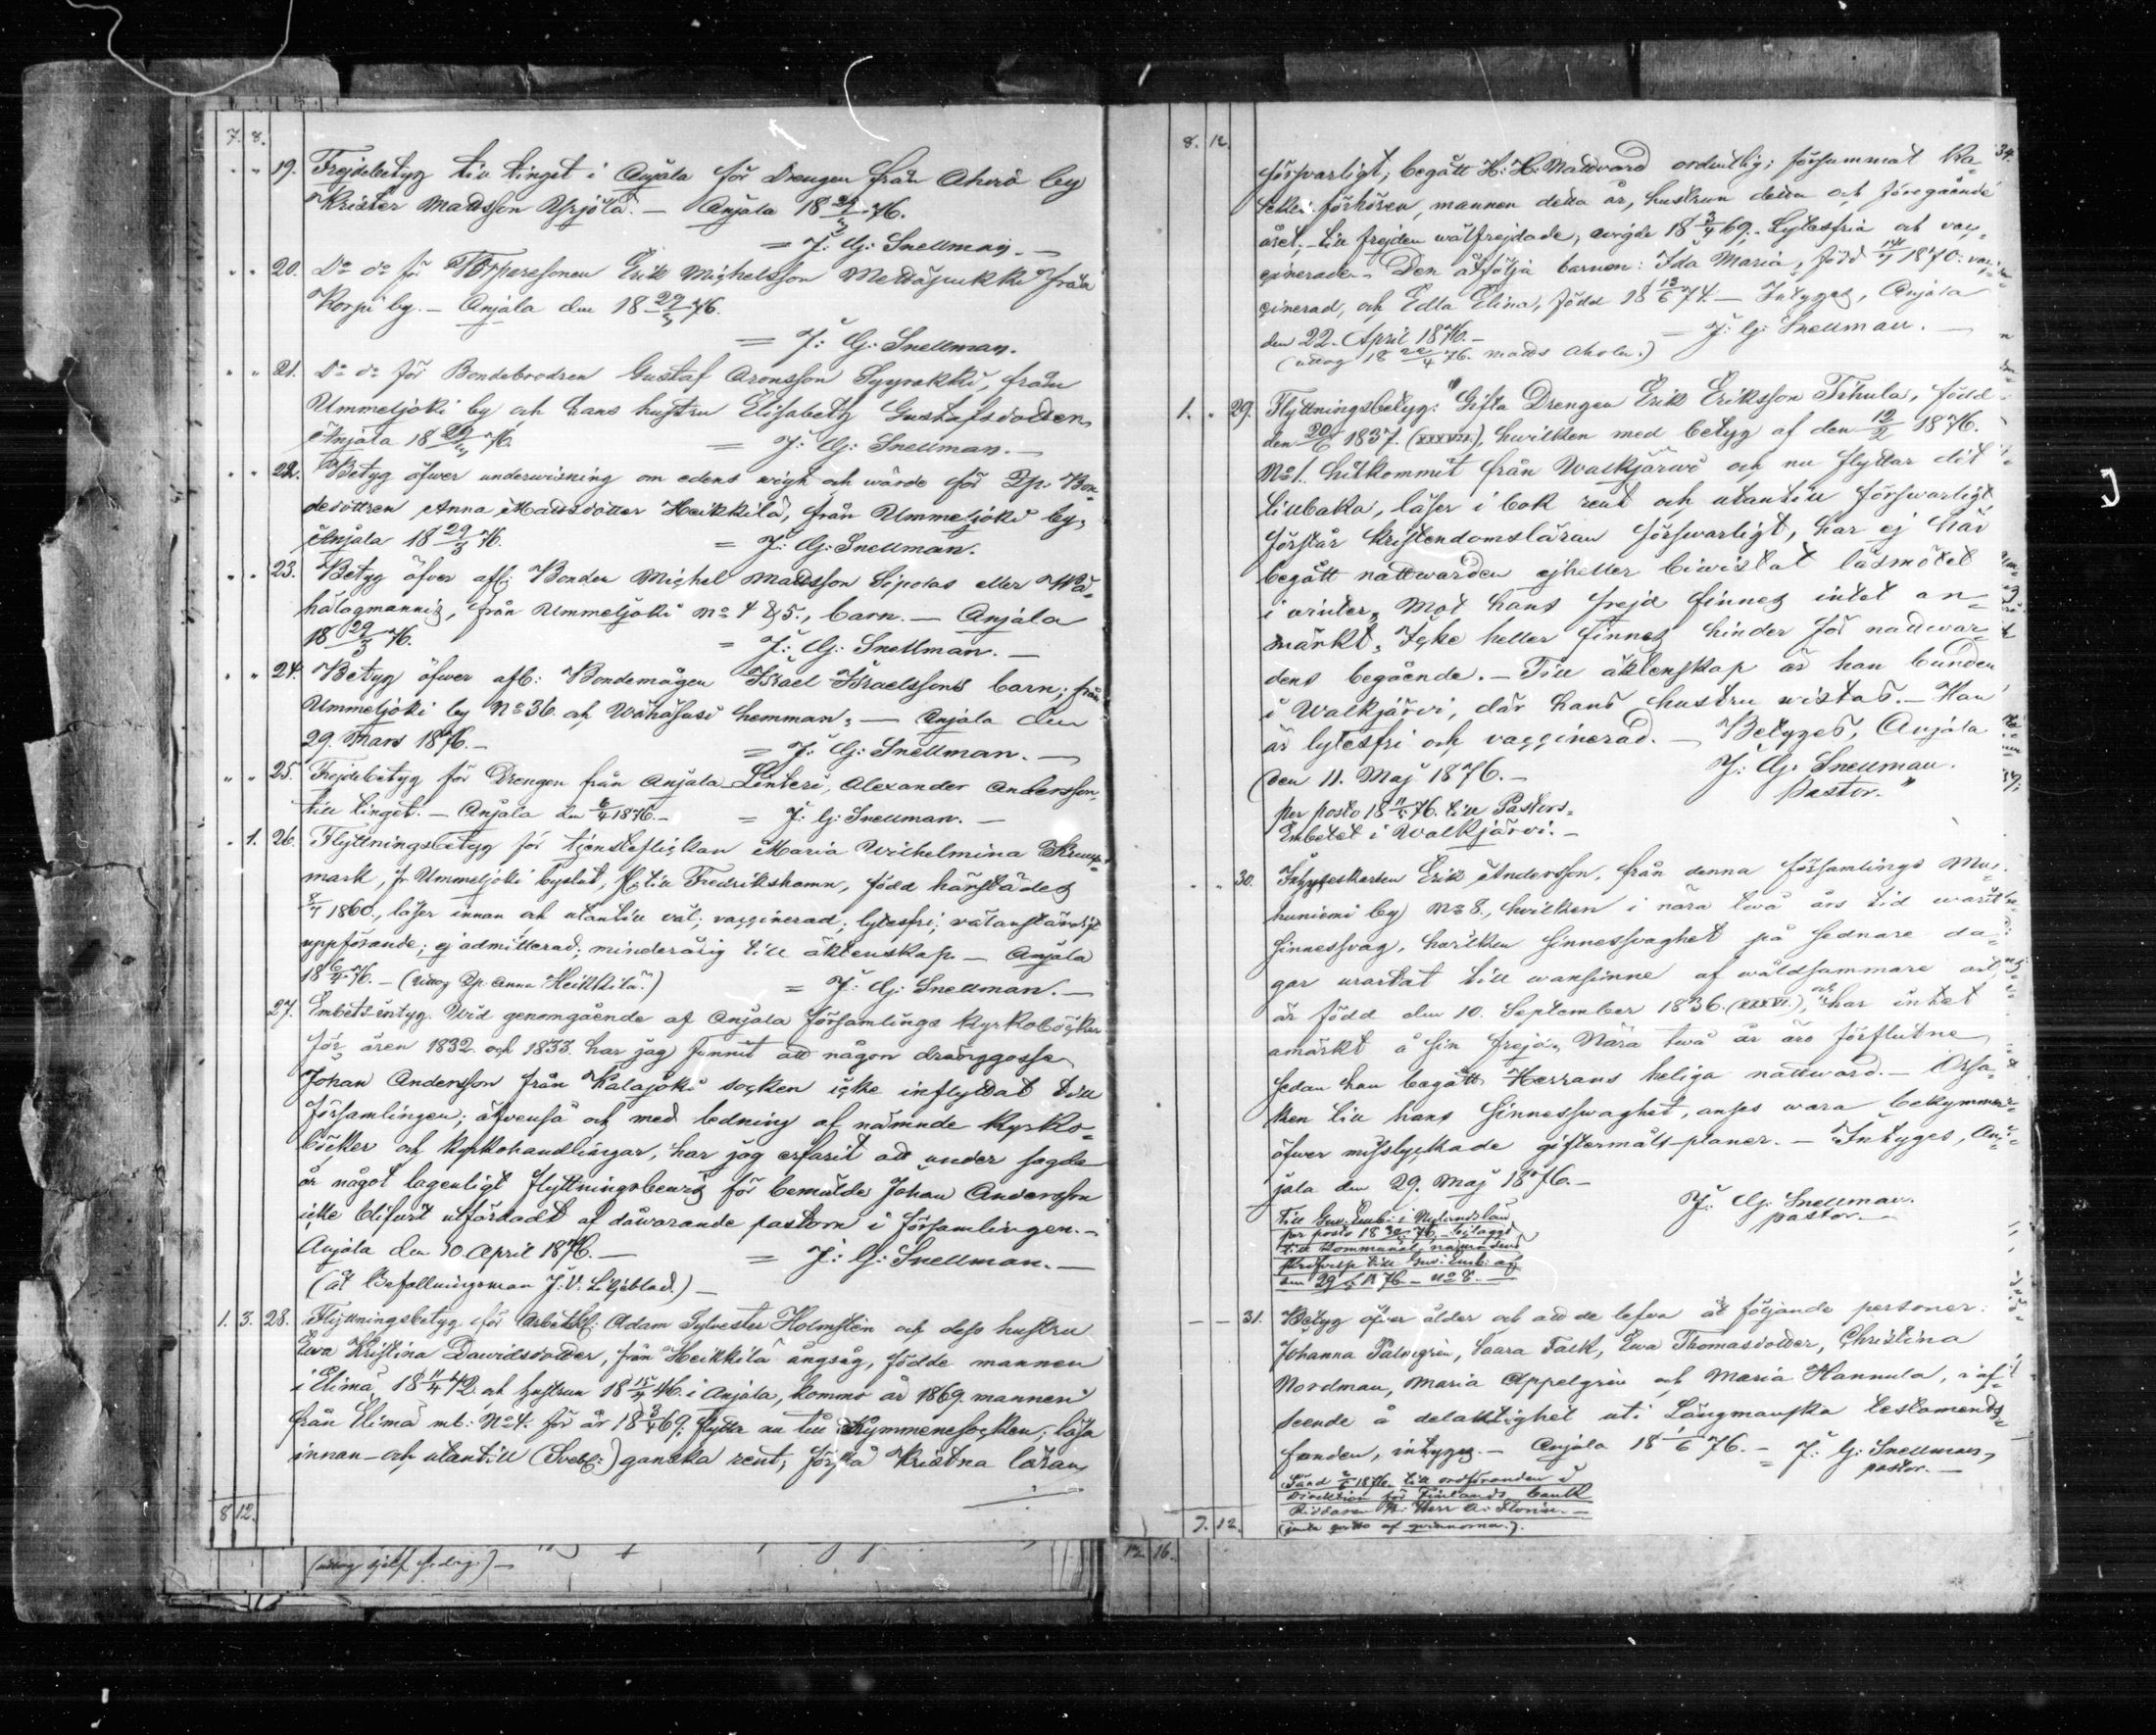 7. 8.
" " 19. Frejdebetyg till tinget i Anjala för Drengen från Ahvio by
Krister Mattsson Yrjölä. — Anjala 18 29/3 76.
= J: G: Snellman. —
" " 20. Do do för Torparesonen Erik Michelsson från
Korpi by. — Anjala den 18 29/3 76.
= J: G: Snellman.
" " 21. Do do för Bondebrodren Gustaf Aronsson Syyrakki, från
Ummeljoki by och hans hustru Elisabeth Gustafsdotter,
Anjala 18 29/3 76. = J: G: Snellman. —
" " 22. Betyg öfwer underwisning om edens wigt och wärde för Pp. Bon-
dedottren Anna Mattsdotter Heikkilä, från Ummeljoki by,
Anjala 18 29/3 76. = J: G: Snellman.
" " 23. Betyg öfver afl: Bonden Michel Mattsson Sipolas eller Wä-
hälagmannis, från Ummeljoki No 4 & 5., barn. — Anjala
18 29/3 76. = J: G: Snellman. —
" " 24. Betyg öfwer afl: Bondemågen Israel Israelssons barn; från
Ummeljoki by No 36. och hemman, — Anjala den
29. Mars 1876. — = J: G: Snellman. —
" " 25. Frejdebetyg för Drengen från Anjala Linteri, Alexander Andersson,
till tinget. — Anjala den 6/4 1876. — = J: G: Snellman. —
" 1. 26. Flyttningsbetyg för tjensteflickan Maria Wilhelmina
mark, fr Ummeljoki till Fredrikshamn, född härstädes
1860., läser innan och utantill väl; vaccinerad; lytesfri; välanständigt
uppförande; ej admitterad; minderårig till äktenskap. — Anjala
18 6/4 76. — (uttog Pp. Anna Heikkilä.) = J: G: Snellman. —
27. Embetsintyg. Wid genomgående af Anjala församlings Kyrkoböcker
för åren 1832. och 1833. har jag funnit att någon drenggosse
Johan Andersson från Kalajoki socken icke inflyttat till
församlingen; äfvenså och med ledning af nämnde kyrko-
böcker och kyrkohandlingar, har jag erfarit att under sagde
år något lagenligt flyttningsbewis för bemälde Johan Andersson
icke blifvit utfärdadt af dåwarande pastorn i församlingen. —
Anjala den 10. April 1876. — = J: G: Snellman. —
(åt Befallningsman J. V. Liljeblad.) —
1. 3. 28. Flyttningsbetyg för Arbetskl: Adam Sylvester Holmstén och dess hustru
Ewa Kristina Dawidsdotter, från Heikkilä ångsåg, födde mannen
i Elimä 18 11/4 42. och hustrun 18 15/4 46. i Anjala, kommo år 1869. mannen
från Elimä mb: No 4. för år 18 3/4 69; flytta nu till Kymmenesocken; läsa
innan- och utantill (Svebil:) ganska rent; förstå Kristna läran,
8 12.
8. 12.
försvarligt; begått H: H: Nattward ordentlig; försummat Ka-
tekesförhören, mannen detta år, hustrun detta och föregående
året, — till frejden wälfrejdade, vigde 18 3/4 69; — Lytesfria och vac-
cinerade. Den åtfölja barnen: Ida Maria, född 1870: vac-
cinerad, och Edla Elina, född 18 13/6 74. — Intyges, Anjala
den 22. April 1876. — — J: G: Snellman. —
(uttog 18 22/4 76. Matts Ahola.)
1. " 29. Flyttningsbetyg: "Gifta Drengen Erik Eriksson Tihula, född
den 20/6 1837. (XXXVII.), hwilken med betyg af den 12/2 1876.
No 1. hitkommit från Walkjärwi och nu flyttar dit
tillbaka, läser i bok rent och utantill förswarligt,
förstår kristendomsläran förswarligt, har ej här
begått nattwarden ejheller biwistat läsmötet
i winter, Mot hans frejd finnes intet an-
märkt, Icke heller finnes hinder för nattwar-
dens begående. — Till äktenskap är han bunden
i Walkjärvi, där hans hustru wistas. — Han
är lytesfri och vaccinerad. — Betyges, Anjala
den 11. Maj 1876. — J: G: Snellman.
Pastor."
per posto 18 11/5 76. till Pastors-
Embetet i Walkjärvi. —
" " 30. Erik Andersson, från denna församlings Mu-
huniemi by No 8., hwilken i nära twå års tid warit
sinnessvag, hwilken sinnessvaghet på sednare da-
gar urartat till wansinne af wåldsammare art,
är född den 10. September 1836. (XXXVI), och har intet
anmärkt å sin frejd, Nära twå år äro förflutne
sedan han begått Herrans heliga nattward. — Orsa-
ken till hans sinnesswaghet, anses wara bekymmer
öfwer misslyckade giftermåls-planer. — Intyges, An-
jala den 29. Maj 1876. —
J: G: Snellman.
pastor. —
Till Guv: Emb: i Nylands län
per posto 18 30/5 76, — bilagdt
till Kommunal-nämndens
till Guv: Emb: af
den 29/5 1876 — No 8. —
— — 31. Betyg öfver ålder och att de lefva åt följande personer:
Johanna Palmgrén, Saara Falk, Ewa Thomasdotter, Christina
Nordman, Maria Appelgrén och Maria Hannula, i af-
seende å delaktighet uti Längmanska testaments
fonden, intyges. — Anjala 18 1/6 76. — = J: G: Snellman,
pastor. —
Sänd 2/6 1876. till ordföranden i
Direktion för Finlands bank
Riddaren Herr A: Florin. —
7. 12.
12. 16.